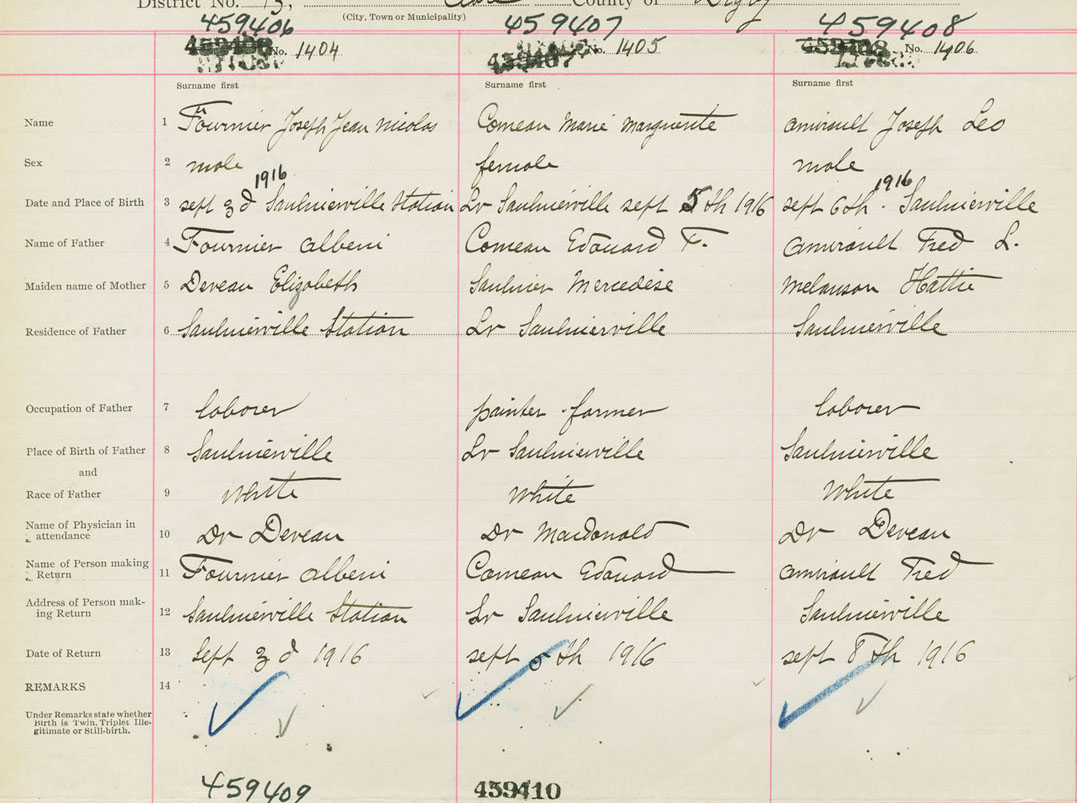 District No. 13, Clare County of Digby
(City, Town or Municipality)
459406 459407 459408
No. 1404 No. 1405 No. 1406
Surname first Surname first Surname first
Name 1 Fournier Joseph Jean Nicolas Comeau Marie Marguerite amirault Joseph Leo
Sex 2 male female male
1916 1916
Date and Place of Birth 3 sept 3d Saulnierville Station Lr Saulnierville sept 5th 1916 sept 6th. Saulnierville
Name of Father 4 Fournier albeni Comeau Edouard F. amirault Fred L.
Maiden name of Mother 5 Deveau Elizabeth Saulnier Mercedese melanson Hattie
Residence of Father 6 Saulnierville Station Lr Saulnierville Saulnierville
Occupation of Father 7 laborer painter farmer laborer
Place of Birth of Father 8 Saulnierville Lr Saulnierville Saulnierville
and
Race of Father 9 White White White
Name of Physician in
attendance 10 Dr Deveau Dr MacDonald Dr Deveau
Name of Person making
Return 11 Fournier albeni Comeau Edouard amirault Fred
Address of Person mak-
ing Return 12 Saulnierville Station Lr Saulnierville Saulnierville
Date of Return 13 Sept 3d 1916 sept th 1916 sept 8th 1916
REMARKS 14
Under Remarks state whether
Birth is Twin, Triplet Ille-
gitimate or Still-birth.
459409 459410